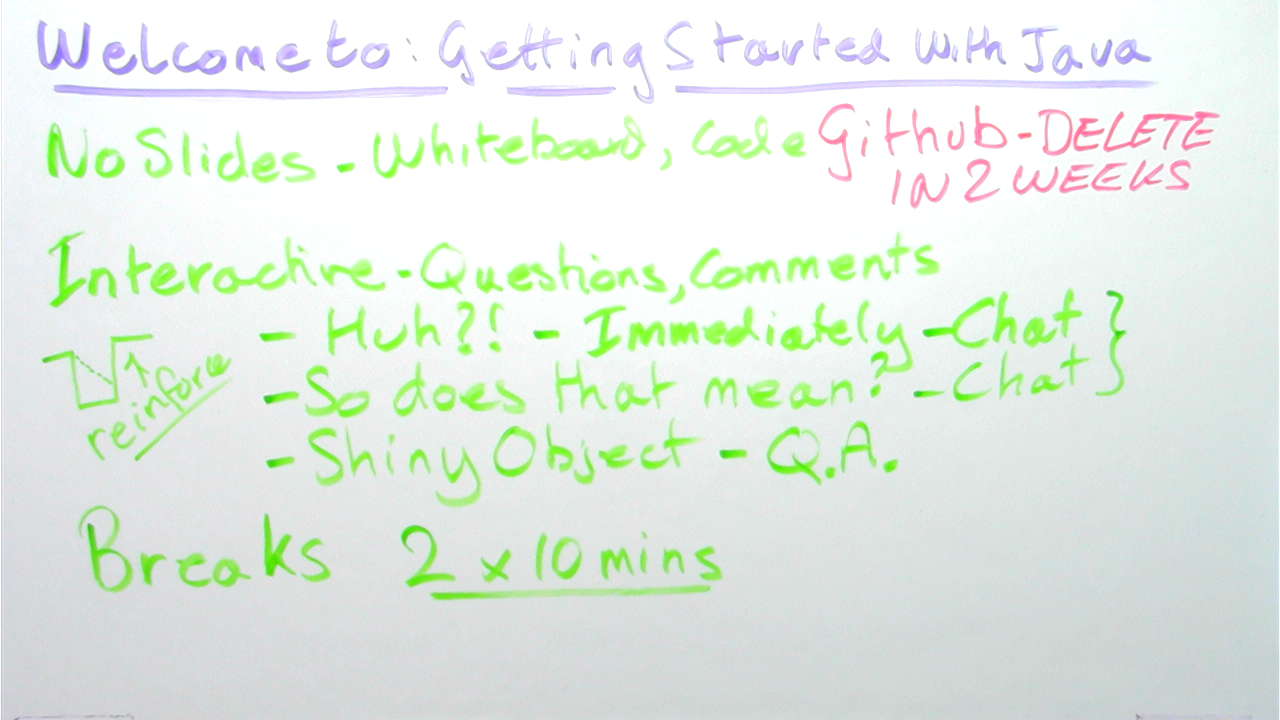 Welcome to: Getting Started With Java
No Slides - Whiteboard, Code Github - DELETE
IN 2 WEEKS
Interactive - Questions, Comments
- Huh?! - Immediately - Chat
- So does that mean? - Chat
reinforce
- Shiny Object - Q.A.
Breaks 2 x 10 mins